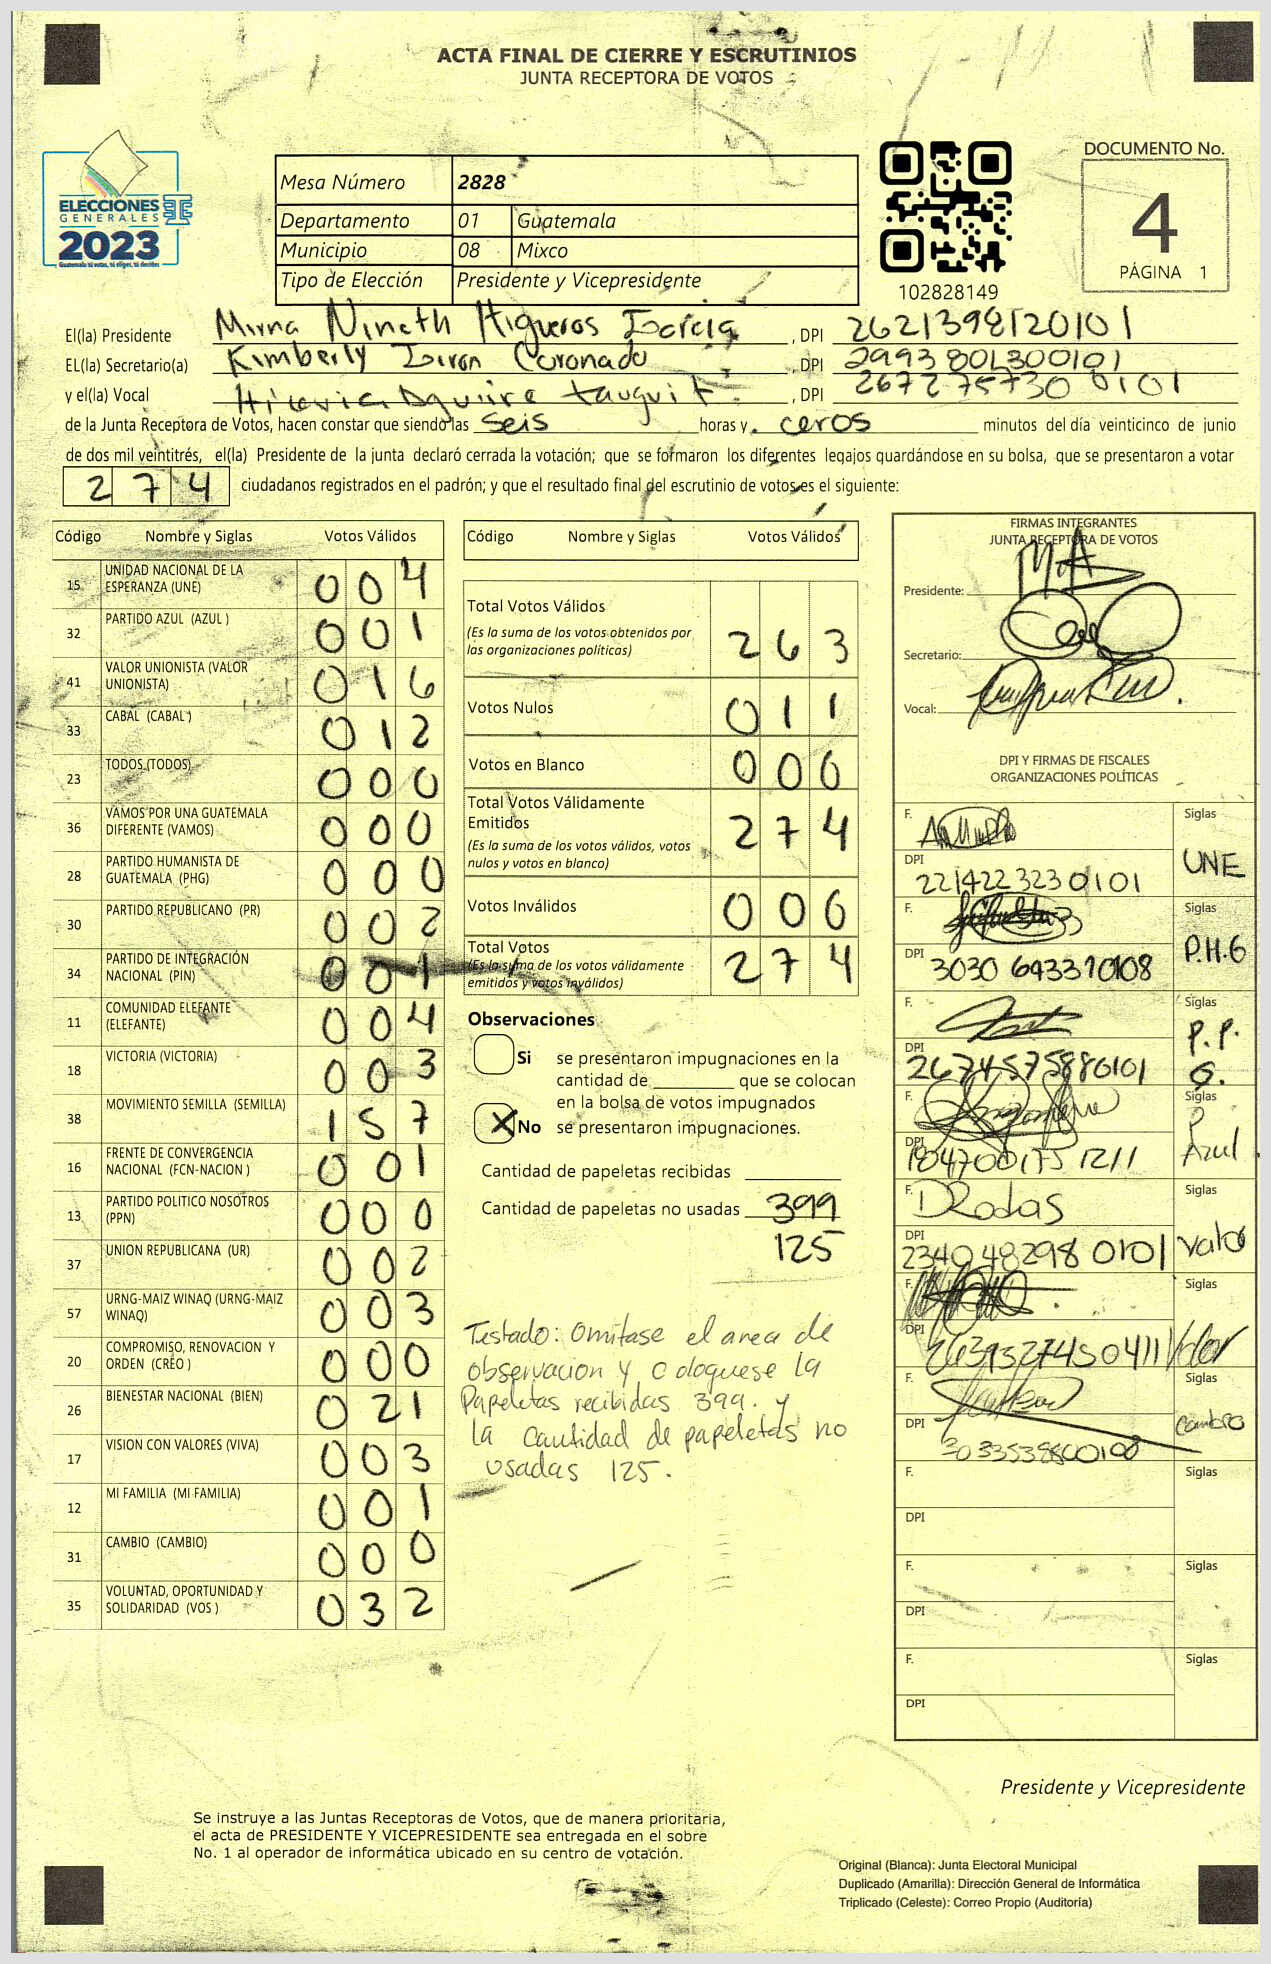 ACTA FINAL DE CIERRE Y ESCRUTINIOS
JUNTA RECEPTORA DE VOTOS
ELECCIONES
GENERALES
2023
Guatemala tú votas, tú eliges, tú decides
Mesa Número 2828
Departamento 01 Guatemala
Municipio 08 Mixco
Tipo de Elección Presidente y Vicepresidente
102828149
DOCUMENTO No.
4
PÁGINA 1
El(la) Presidente Mirna Nineth Higueros García, DPI 2621398120101
EL(la) Secretario(a) Kimberly Girón Coronado, DPI 2993801300101
y el(la) Vocal Aguirre, DPI 2672757300101
de la Junta Receptora de Votos, hacen constar que siendo las seis horas y ceros minutos del día veinticinco de junio
de dos mil veintitrés, el(la) Presidente de la junta declaró cerrada la votación; que se formaron los diferentes legajos quardándose en su bolsa, que se presentaron a votar
274 ciudadanos registrados en el padrón; y que el resultado final del escrutinio de votos es el siguiente:
Código Nombre y Siglas Votos Válidos
15 UNIDAD NACIONAL DE LA ESPERANZA (UNE) 004
32 PARTIDO AZUL (AZUL ) 001
41 VALOR UNIONISTA (VALOR UNIONISTA) 016
33 CABAL (CABAL ) 012
23 TODOS (TODOS) 000
36 VAMOS POR UNA GUATEMALA DIFERENTE (VAMOS) 000
28 PARTIDO HUMANISTA DE GUATEMALA (PHG) 000
30 PARTIDO REPUBLICANO (PR) 002
34 PARTIDO DE INTEGRACIÓN NACIONAL (PIN) 001
11 COMUNIDAD ELEFANTE (ELEFANTE) 004
18 VICTORIA (VICTORIA) 003
38 MOVIMIENTO SEMILLA (SEMILLA) 157
16 FRENTE DE CONVERGENCIA NACIONAL (FCN-NACION ) 001
13 PARTIDO POLITICO NOSOTROS (PPN) 000
37 UNION REPUBLICANA (UR) 002
57 URNG-MAIZ WINAQ (URNG-MAIZ WINAQ) 003
20 COMPROMISO, RENOVACION Y ORDEN (CREO ) 000
26 BIENESTAR NACIONAL (BIEN) 021
17 VISION CON VALORES (VIVA) 003
12 MI FAMILIA (MI FAMILIA) 001
31 CAMBIO (CAMBIO) 000
35 VOLUNTAD, OPORTUNIDAD Y SOLIDARIDAD (VOS ) 032
Código Nombre y Siglas Votos Válidos
Total Votos Válidos 263
(Es la suma de los votos obtenidos por
las organizaciones políticas)
Votos Nulos 011
Votos en Blanco 000
Total Votos Válidamente
Emitidos 274
(Es la suma de los votos válidos, votos
nulos y votos en blanco)
Votos Inválidos 000
Total Votos 274
(Es la suma de los votos válidamente
emitidos y votos inválidos)
Observaciones
Si se presentaron impugnaciones en la
cantidad de ________ que se colocan
en la bolsa de votos impugnados
X No se presentaron impugnaciones.
Cantidad de papeletas recibidas
Cantidad de papeletas no usadas 399
125
Testado: Omitase el area de
observacion y coloquese la
Papeletas recibidas 399. y
la cantidad de papeletas no
usadas 125.
FIRMAS INTEGRANTES
JUNTA RECEPTORA DE VOTOS
Presidente:
Secretario:
Vocal:
DPI Y FIRMAS DE FISCALES
ORGANIZACIONES POLÍTICAS
F. Siglas UNE
DPI 2214223230101
F. Siglas P.H.G
DPI 3030643370108
F. Siglas P.P.G.
DPI 2674575880101
F. Siglas P Azul
DPI 1847001751211
F. DRodas Siglas Valor
DPI 2340482980101
F. Siglas Valor
DPI 2639327450411
F. Siglas Cambio
DPI 3033539800108
F. Siglas
DPI
F. Siglas
DPI
F. Siglas
DPI
Presidente y Vicepresidente
Se instruye a las Juntas Receptoras de Votos, que de manera prioritaria,
el acta de PRESIDENTE Y VICEPRESIDENTE sea entregada en el sobre
No. 1 al operador de informática ubicado en su centro de votación.
Original (Blanca): Junta Electoral Municipal
Duplicado (Amarilla): Dirección General de Informática
Triplicado (Celeste): Correo Propio (Auditoría)